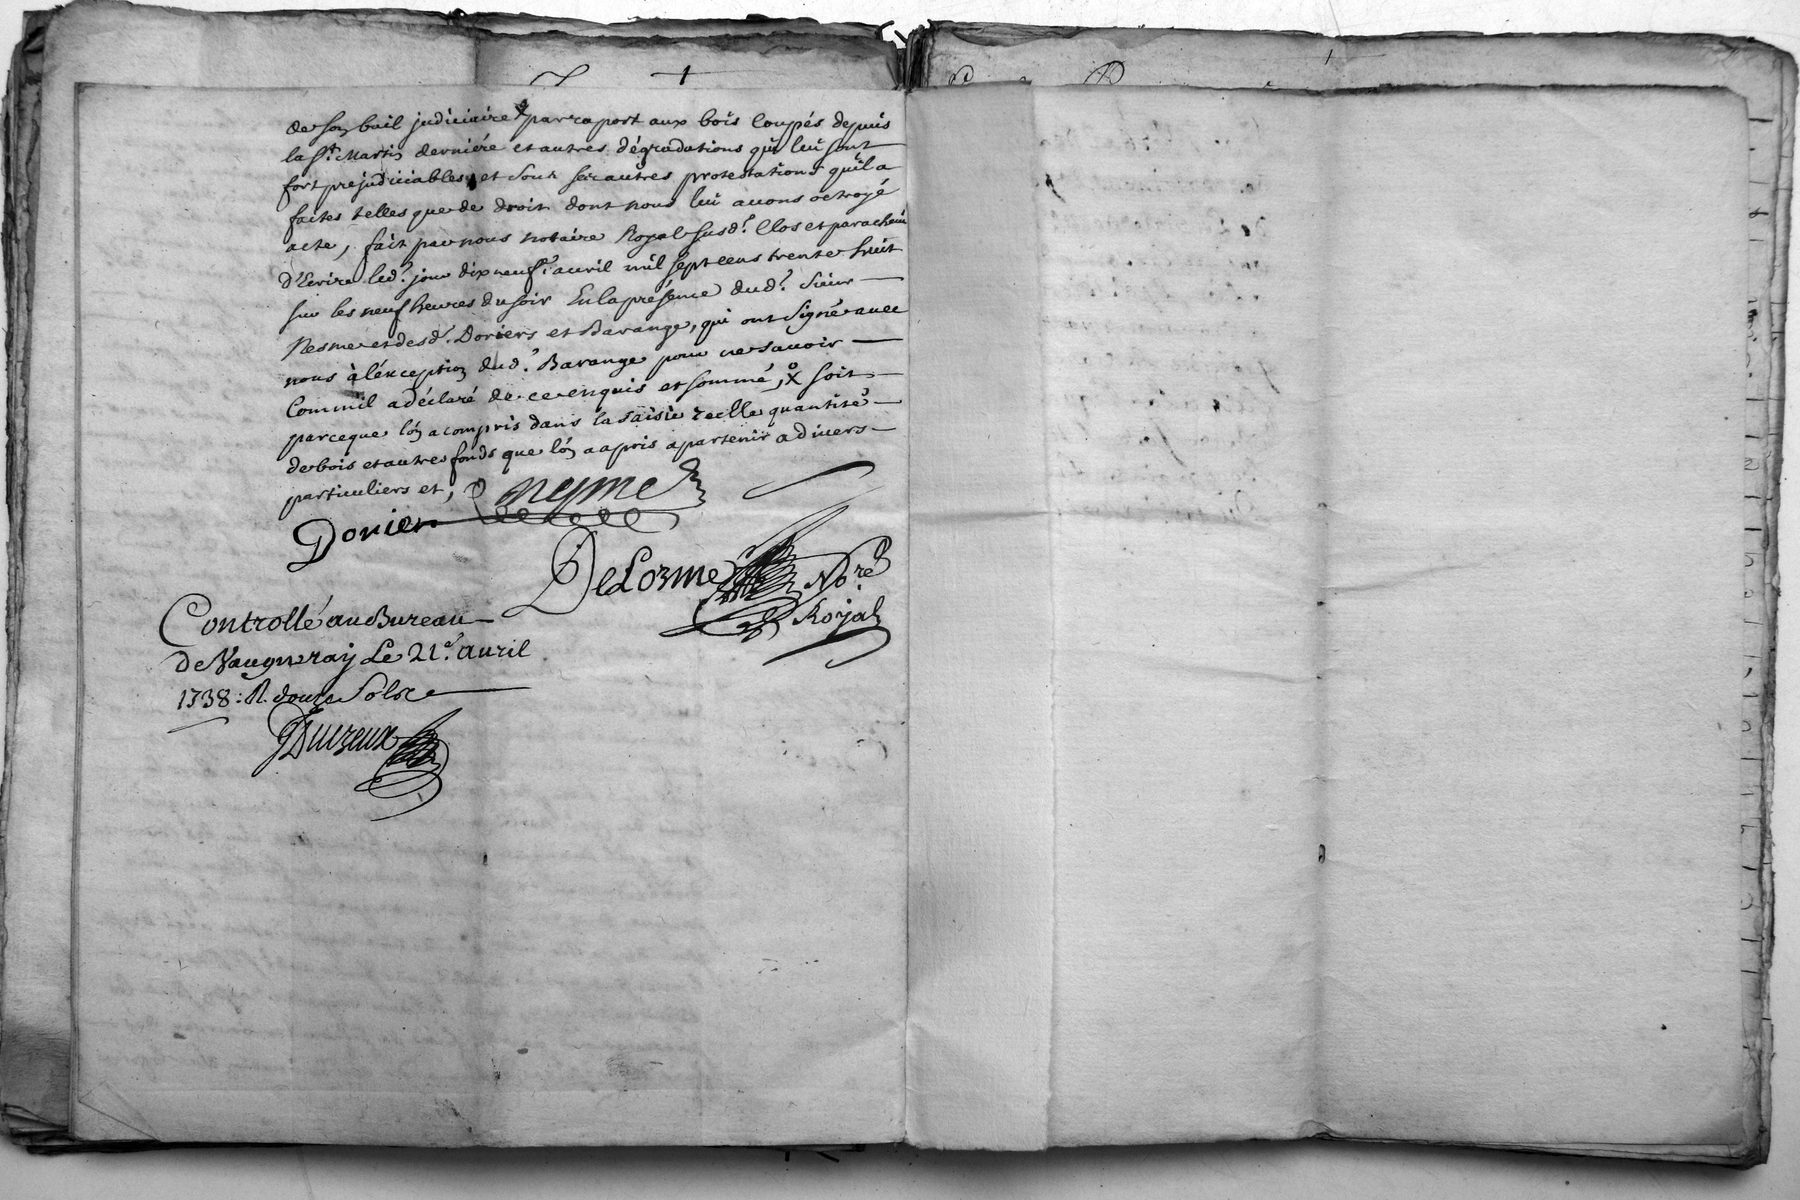 de son bail judiciaire x par raport aux bois Coupés depuis
la St. Martin derniére et autres dégradations qui lui sont
fort prejudiciables, et sous ses autres protestations qu'il a
faites telles que de droit dont nous lui avons octroyé
acte, fait par nous notaire Royal susd. Clos et parachevé
d'Ecrire led. jour dix neuf.e avril mil sept cens trente huit
sur les neuf heures du soir En la présence dud. Sieur
Nesme et desd. Doriers et Barange, qui ont Signé avec
nous à l'éxception dud. Barange pour ne savoir
Comm'il a déclaré de ce enquis et sommé, x soit
parceque l'on a compris dans la saisie réelle quantité
de bois et autres fonds que l'on a apris apartenir a divers
particuliers et,
Nesme
Dorier
DeLorme No.re
Royal
Controllé au Bureau
de Vaugneray Le 21.e avril
1738: R. douze Sols
Duizeux